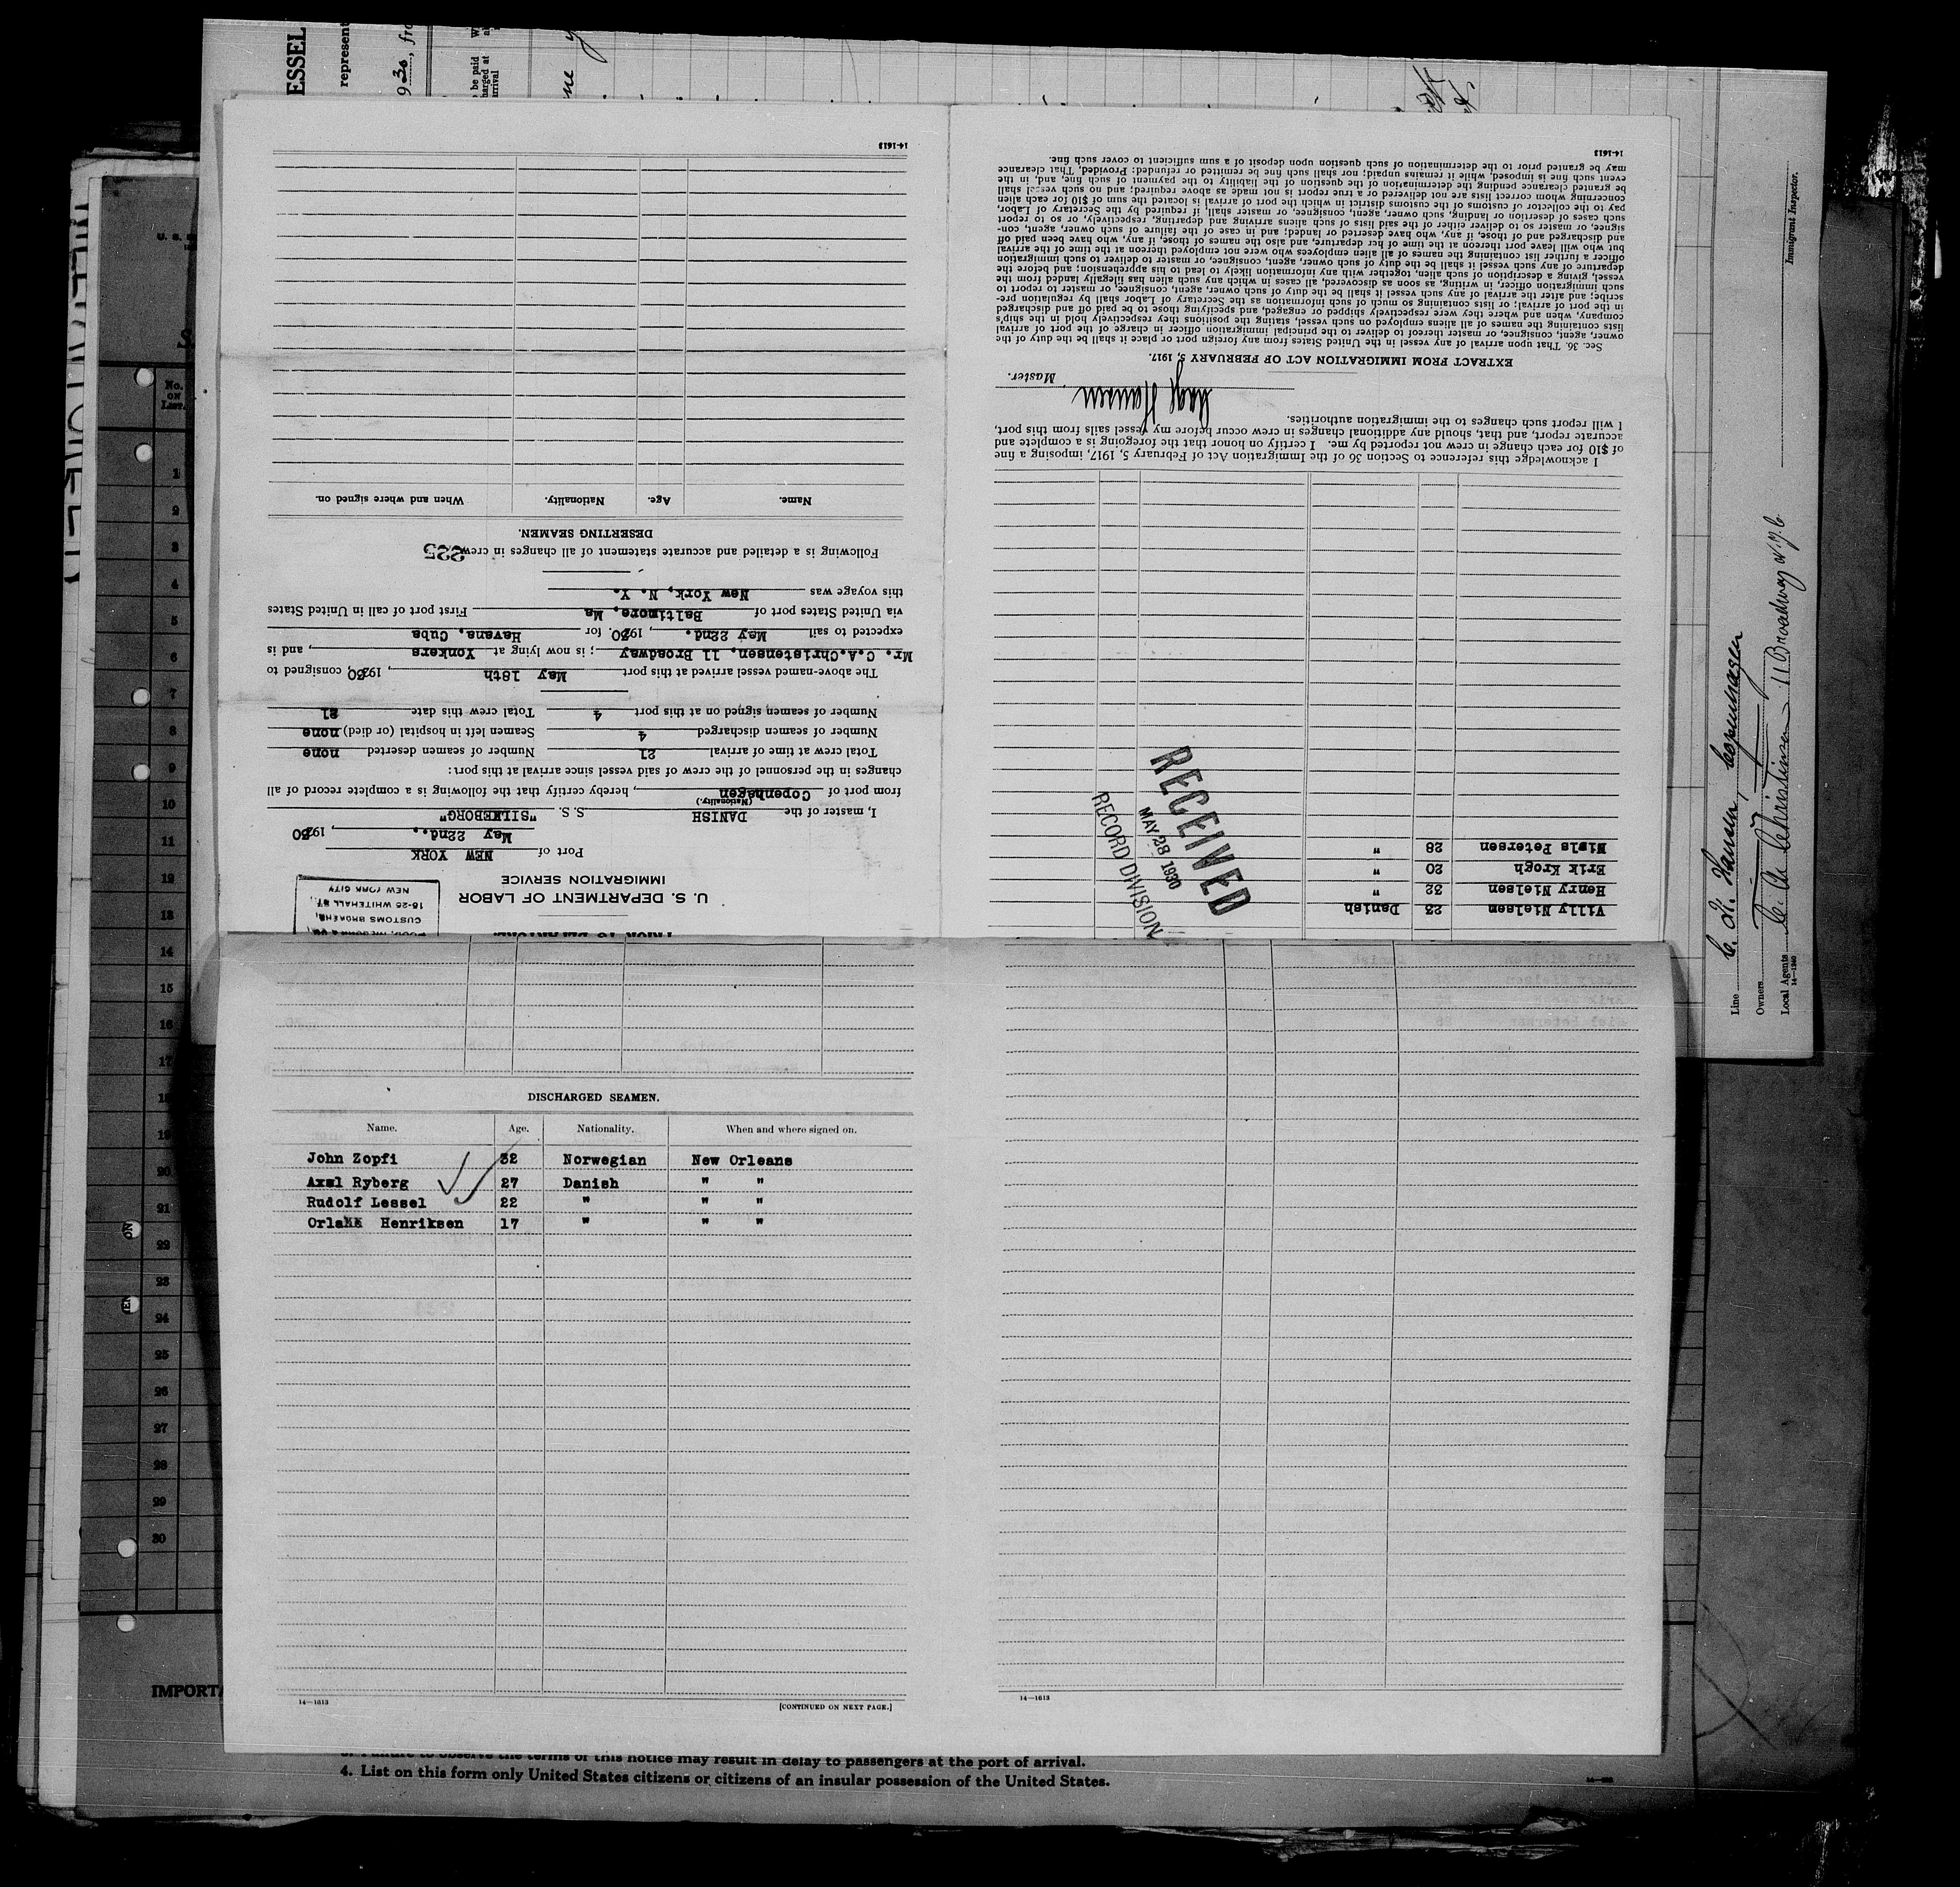 ESSEL
represent
930, fro
to be paid
charged at
arrival
U. S. DEPARTMENT OF LABOR
IMMIGRATION SERVICE
CUSTOMS BROKERS,
18-25 WHITEHALL ST.,
NEW YORK CITY
Port of NEW YORK
May 22nd., 1930
I, master of the DANISH S. S. "SILKEBORG"
(Nationality.)
from port of Copenhagen, hereby certify that the following is a complete record of all
changes in the personnel of the crew of said vessel since arrival at this port:
Total crew at time of arrival 21 Number of seamen deserted none
Number of seamen discharged 4 Seamen left in hospital (or died) none
Number of seamen signed on at this port 4 Total crew this date 21
The above-named vessel arrived at this port May 18th, 1930, consigned to
Mr. C.A.Christensen, 11 Broadway; is now lying at Yonkers, and is
expected to sail May 22nd., 1930, for Havana, Cuba
via United States port of Baltimore, Ma First port of call in United States
this voyage was New York, N. Y.
Following is a detailed and accurate statement of all changes in crew 225
DESERTING SEAMEN.
Name. Age. Nationality. When and where signed on.
14-1613
Villy Nielsen 23 Danish
Henry Nielsen 32 "
Erik Krogh 20 "
Niels Petersen 28 "
RECEIVED
MAY 28 1930
RECORD DIVISION
I acknowledge this reference to Section 36 of the Immigration Act of February 5, 1917, imposing a fine
of $10 for each change in crew not reported by me. I certify on honor that the foregoing is a complete and
accurate report, and that, should any additional changes in crew occur before my vessel sails from this port,
I will report such changes to the immigration authorities.
Hansen
Master.
EXTRACT FROM IMMIGRATION ACT OF FEBRUARY 5, 1917.
Sec. 36. That upon arrival of any vessel in the United States from any foreign port or place it shall be the duty of the
owner, agent, consignee, or master thereof to deliver to the principal immigration officer in charge of the port of arrival
lists containing the names of all aliens employed on such vessel, stating the positions they respectively hold in the ship's
company, when and where they were respectively shipped or engaged, and specifying those to be paid off and discharged
in the port of arrival; or lists containing so much of such information as the Secretary of Labor shall by regulation pre-
scribe; and after the arrival of any such vessel it shall be the duty of such owner, agent, consignee, or master to report to
such immigration officer, in writing, as soon as discovered, all cases in which any such alien has illegally landed from the
vessel, giving a description of such alien, together with any information likely to lead to his apprehension; and before the
departure of any such vessel it shall be the duty of such owner, agent, consignee, or master to deliver to such immigration
officer a further list containing the names of all alien employees who were not employed thereon at the time of the arrival
but who will leave port thereon at the time of her departure, and also the names of those, if any, who have been paid off
and discharged and of those, if any, who have deserted or landed; and in case of the failure of such owner, agent, con-
signee, or master so to deliver either of the said lists of such aliens arriving and departing, respectively, or so to report
such cases of desertion or landing, such owner, agent, consignee, or master shall, if required by the Secretary of Labor,
pay to the collector of customs of the customs district in which the port of arrival is located the sum of $10 for each alien
concerning whom correct lists are not delivered or a true report is not made as above required; and no such vessel shall
be granted clearance pending the determination of the question of the liability to the payment of such fine, and, in the
event such fine is imposed, while it remains unpaid; nor shall such fine be remitted or refunded: Provided, That clearance
may be granted prior to the determination of such question upon deposit of a sum sufficient to cover such fine.
14-1613
DISCHARGED SEAMEN.
Name. Age. Nationality. When and where signed on.
John Zopfi 32 Norwegian New Orleans
Axel Ryberg 27 Danish " "
Rudolf Lessel 22 " " "
Orla Henriksen 17 " " "
14—1613
[CONTINUED ON NEXT PAGE.]
14—1613
Immigrant Inspector.
Line C. K. Hansen, Copenhagen
Owners
Local Agents C. A. Christensen 11 Broadway N.Y.C.
14—1240
No.
ON
LIST.
1
2
3
4
5
6
7
8
9
10
11
12
13
14
15
16
17
18
19
20
21
22
23
24
25
26
27
28
29
30
IMPORTA
3. Failure to observe the terms of this notice may result in delay to passengers at the port of arrival.
4. List on this form only United States citizens or citizens of an insular possession of the United States.